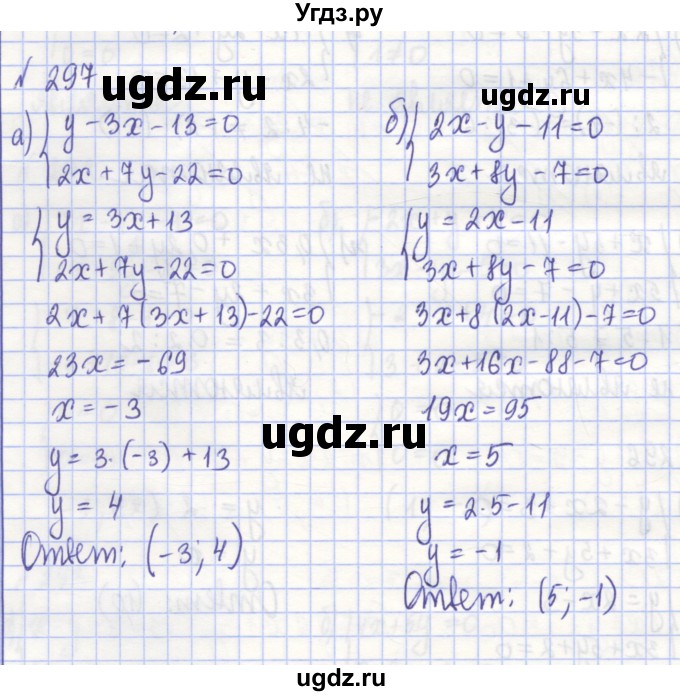 Угдз.ру
№ 297
ugdz.ru
ugdz.ru
а) { y - 3x - 13 = 0
2x + 7y - 22 = 0
{ y = 3x + 13
2x + 7y - 22 = 0
2x + 7(3x + 13) - 22 = 0
23x = - 69
x = - 3
y = 3 · (-3) + 13
y = 4
Ответ: (-3; 4)
б) { 2x - y - 11 = 0
3x + 8y - 7 = 0
{ y = 2x - 11
3x + 8y - 7 = 0
3x + 8(2x - 11) - 7 = 0
3x + 16x - 88 - 7 = 0
19x = 95
x = 5
y = 2 · 5 - 11
y = - 1
Ответ: (5; -1)
ugdz.ru
ugdz.ru